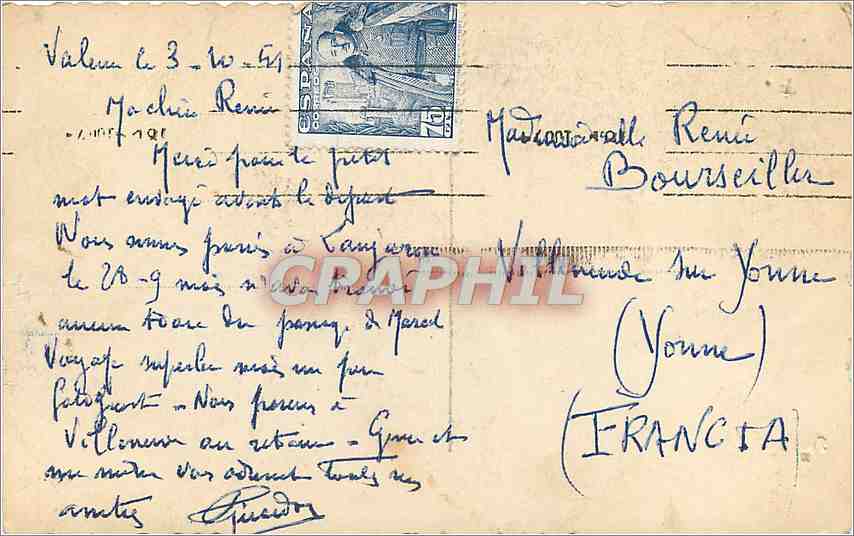 Valence le 3-10-51
Ma chère Renée
Merci pour le petit
mot envoyé avant le départ
Nous sommes passés à Lanjaron
le 28-9 mais n'avons trouvé
aucune trace du passage de Marcel
Voyage superbe mais un peu
fatigant - Nous passerons à
Villeneuve au retour - et
ma mère vous adressent toutes nos
amitiés
ESPAÑA
CORREOS
Mademoiselle Renée
Bourseiller
Villeneuve sur Yonne
(Yonne)
(FRANCIA)
CPARPHIL